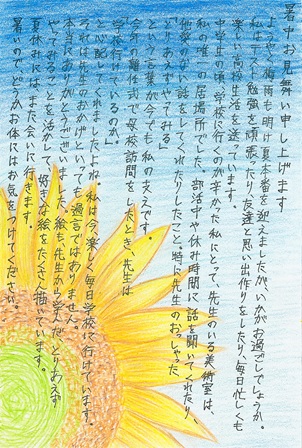 暑中お見舞い申し上げます
ようやく梅雨も明け夏本番を迎えましたが、いかがお過ごしでしょうか。
私はテスト勉強を頑張ったり、友達と思い出作りをしたり、毎日忙しくも
楽しい高校生活を送っています。
中学生の頃、学校に行くのが辛かった私にとって、先生のいる美術室は、
私の唯一の居場所でした。部活中や休み時間に話を聞いてくれたり、
他愛のない話をしてくれたりしたこと。特に先生のおっしゃった
「とりあえずやってみる」
という言葉が今でも私の支えです。
今年の離任式で母校訪問をしたとき、先生は
「学校行けているのか。」
と心配してくれましたよね。私は今、楽しく毎日学校に行けています。
それは先生のおかげといっても過言ではありません。
本当にありがとうございました。絵も、先生から学んだとりあえず
やってみることを活かして、好きな絵をたくさん描いています。
夏休みには、また会いに行きます。
暑いのでどうかお体にはお気をつけてください。